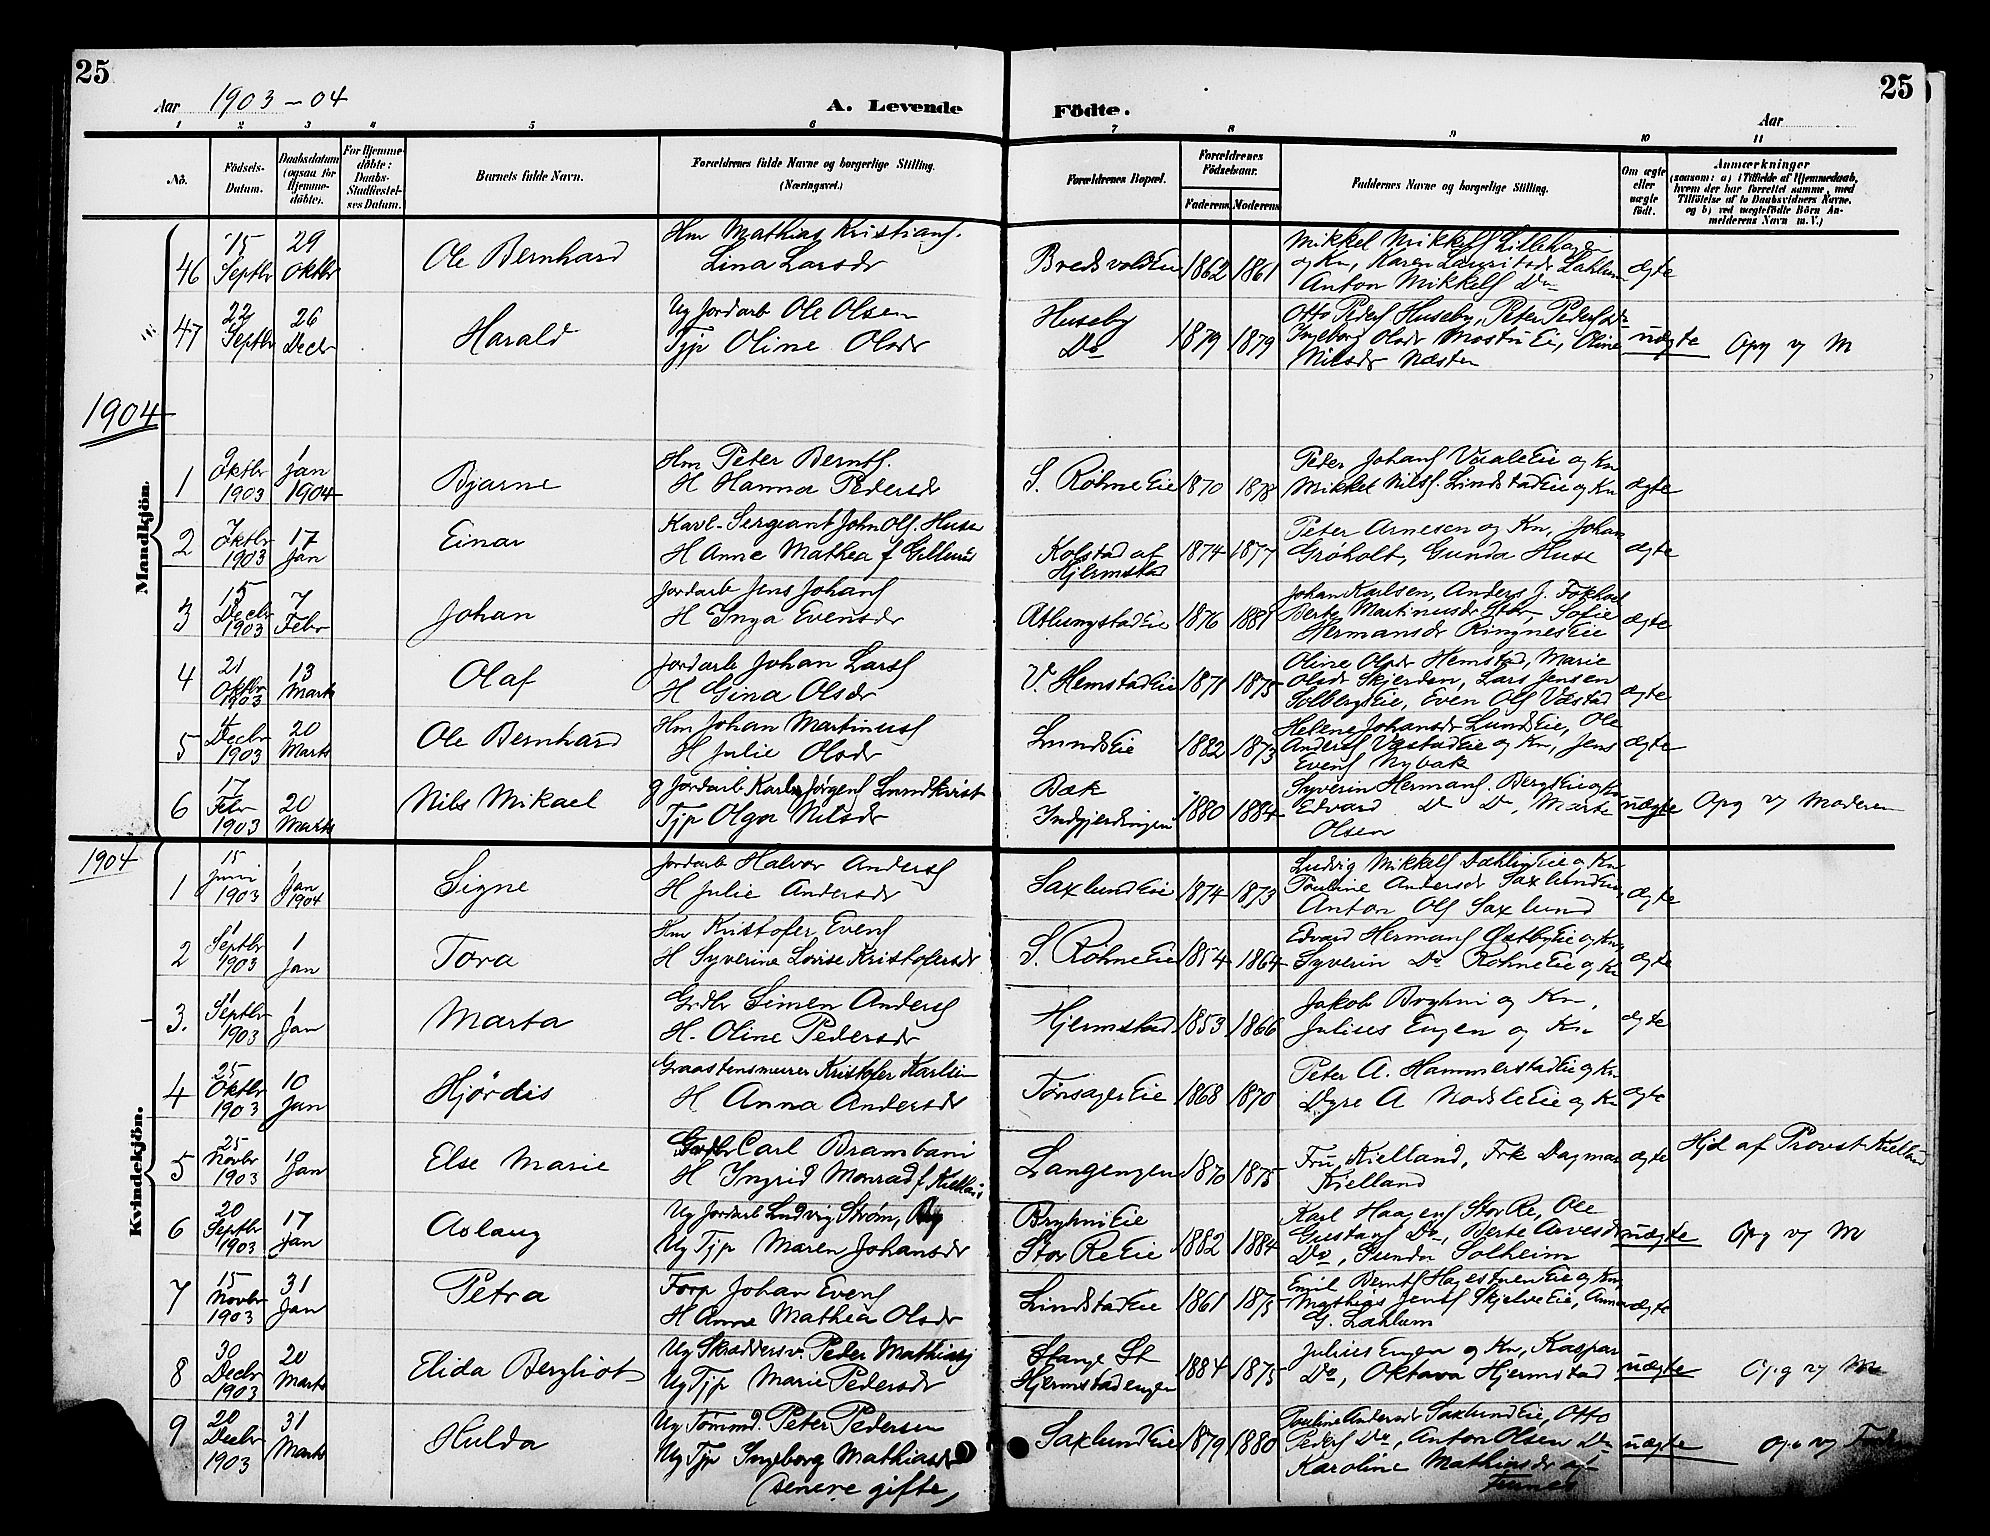 25
25
Aar 1903-04
A. Levende Födte.
Aar
1 2 3 4 5 6 7 8 9 10 11
No.
Födsels-Datum.
Daabsdatum (ogsaa for Hjemme-döbte).
For Hjemme-döbte: Daabs-Stadfæstel-ses Datum.
Barnets fulde Navn.
Forældrenes fulde Navne og borgerlige Stilling. (Næringsvei.)
Forældrenes Bopæl.
Forældrenes Födselsaar.
Faderens Moderens
Faddernes Navne og borgerlige Stilling.
Om ægte eller uægte födt.
Anmærkninger
(saasom: a) i Tilfælde af Hjemmedaab, hvem der har forrettet samme, med Tilföielse af to Daabsvidners Navne, og b) ved uægtefödte Börn An-melderens Navn m. V.)
Mandkjön.
46 15 Septbr 29 Oktbr Ole Bernhard
Hm Mathias Kristians.
Lina Larsdr
Bredsvold Eie 1862 1861
Mikkel Mikkels Lillehagen
og Kn, Karen Lauritsdr Lahlum
Anton Mikkels Do
ægte
47 22 Septbr 26 Decbr Harald
Ug Jordarb Ole Olsen
Tjp Oline Olsdr
Huseby
Do
1879 1879
Otto Peders Huseby, Peter Peders Do
Ingeborg Olsdr Mostu Eie, Oline
Nilsdr Næsten
uægte Opg v M
1904
1 9 Oktbr 1903 1 Jan 1904 Bjarne
Hm Peter Bernts.
H Hanna Pedersdr
S. Røhne Eie 1870 1878
Peder Johans Vaale Eie og Kn
Mikkel Nils. Lindstad Eie og Kn
ægte
2 Oktbr 1903 17 Jan Einar
Kavl-Sergeant John Ols. Huse
H Anne Mathea f
Kolstad af
Hjermstad
1874 1877
Peter Arnesen og Kn, Johan
Grøholt, Gunda Huse
ægte
3 15 Decbr 1903 7 Febr Johan
Jordarb Jens Johans
H Inga Evensdr
Atlungstad Eie 1876 1881
Johan Karlsen, Anders J.
Berte Martinusdr Sofie
Hermansdr Ringnes Eie
ægte
4 21 Oktbr 1903 13 Marts Olaf
Jordarb Johan Lars
H Gina Olsdr
V. Hemstad Eie 1871 1875
Oline Olsdr Hemstad, Marie
Olsdr Skjerden, Lars Jensen
Solberg Eie, Even Ols Væstad
ægte
5 Decbr 1903 20 Marts Ole Bernhard
Hm Johan Martinus
H Julie Olsdr
Lunds Eie 1882 1873
Helene Johansdr Lunds Eie, Ole
Anders Væstad Eie og Kn, Jens
Evens Nybak
ægte
6 17 Febr 1903 20 Marts Nils Mikael
g Jordarb Karl Jørgens Lundkvist
Tjp Olga Nilsdr
Bæk
Indgjerdingen
1880 1884
Syverin Hermans. Bergs Eie og Kn
Edvard Do Do, Marte
Olsen
uægte Opg v Moderen
Kvindekjön.
1904
1 15 Juni 1903 1 Jan 1904 Signe
Jordarb Halvor Anders
H Julie Andersdr
Saxlund Eie 1874 1873
Ludvig Mikkels Dæhlin Eie og Kn
Pauline Andersdr Saxlund Eie,
Anton Ols Saxlund
ægte
2 1 Septbr 1903 1 Jan Tora
Hm Kristofer Evens
H Syverine Lovise Kristofersdr
S. Røhne Eie 1854 1864
Edvard Hermans Østby Eie og Kn
Syverin Do Røhne Eie og Kn
ægte
3. 1 Septbr 1903 1 Jan Marta
Grdbr Simen Anders
H. Oline Pedersdr
Hjermstad 1853 1866
Jakob Bryhni og Kn,
Julius Engen og Kn
ægte
4 25 Oktbr 1903 10 Jan Hjördis
Graastensmurer Kristofer Karlsen
H Anna Andersdr
Tønsager Eie 1868 1870
Peter A. Hammerstad Eie og Kn
Dyre A Nodsle Eie og Kn
ægte
5 25 Novbr 1903 18 Jan Else Marie
Grdbr Carl Brambani
H Ingrid Monrad f Kielland
Langengen 1870 1875
Fru Kielland, Frk Dagmar
Kielland
ægte Hjd af Provst Kielland
6 20 Septbr 1903 17 Jan Aslaug
Ug Jordarb Ludvig Strøm,
Ug Tjp Maren Johansdr
Bryhni Eie
Stor Re Eie
1882 1884
Karl Haagens Stor Re, Ole
Gustavs Do, Berte Arvesdr
Do, Gunda Solheim
uægte Opg v M
7 15 Novbr 1903 31 Jan Petra
Forp Johan Evens
H Anne Mathea Olsdr
Lindstad Eie 1861 1875
Emil Bernts Hagestuen Eie og Kn,
Mathias Jens Skjelve Eie, Anna
G. Lahlum
ægte
8 30 Decbr 1903 20 Marts Elida Bergliot
Ug Skræddersv. Peder Mathias
Ug Tjp Marie Pedersdr
Stange St
Hjermstadengen
1884 1875
Julius Engen og Kn, Kaspar
Do, Oktava Hjermstad
uægte Opg v M
9 20 Decbr 1903 31 Marts Hulda
Ug Tømmd. Peter Pedersen
Ug Tjp Ingeborg Mathiasdr
(senere gifte)
Saxlund Eie 1879 1880
Pauline Andersdr Saxlund Eie, Otto
Peders Do, Anton Olsen Do
Karoline Mathiasdr
uægte Opg v Faderen